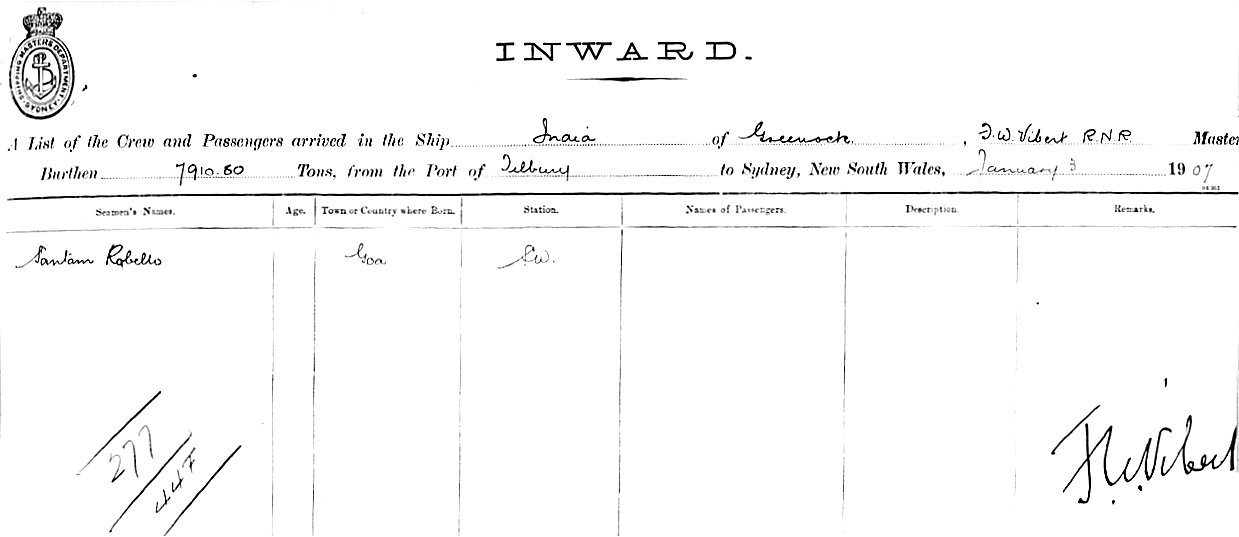 SHIPPING MASTERS DEPARTMENT
SYDNEY
INWARD.
A List of the Crew and Passengers arrived in the Ship India of Greenock, F.W. Vibert R.N.R. Master
Burthen 7910.80 Tons, from the Port of Tilbury to Sydney, New South Wales, January 3 1907
Seamen's Names. Age. Town or Country where Born. Station. Names of Passengers. Description. Remarks.
Santam Rabello Goa S.W.
277
447
Vibert